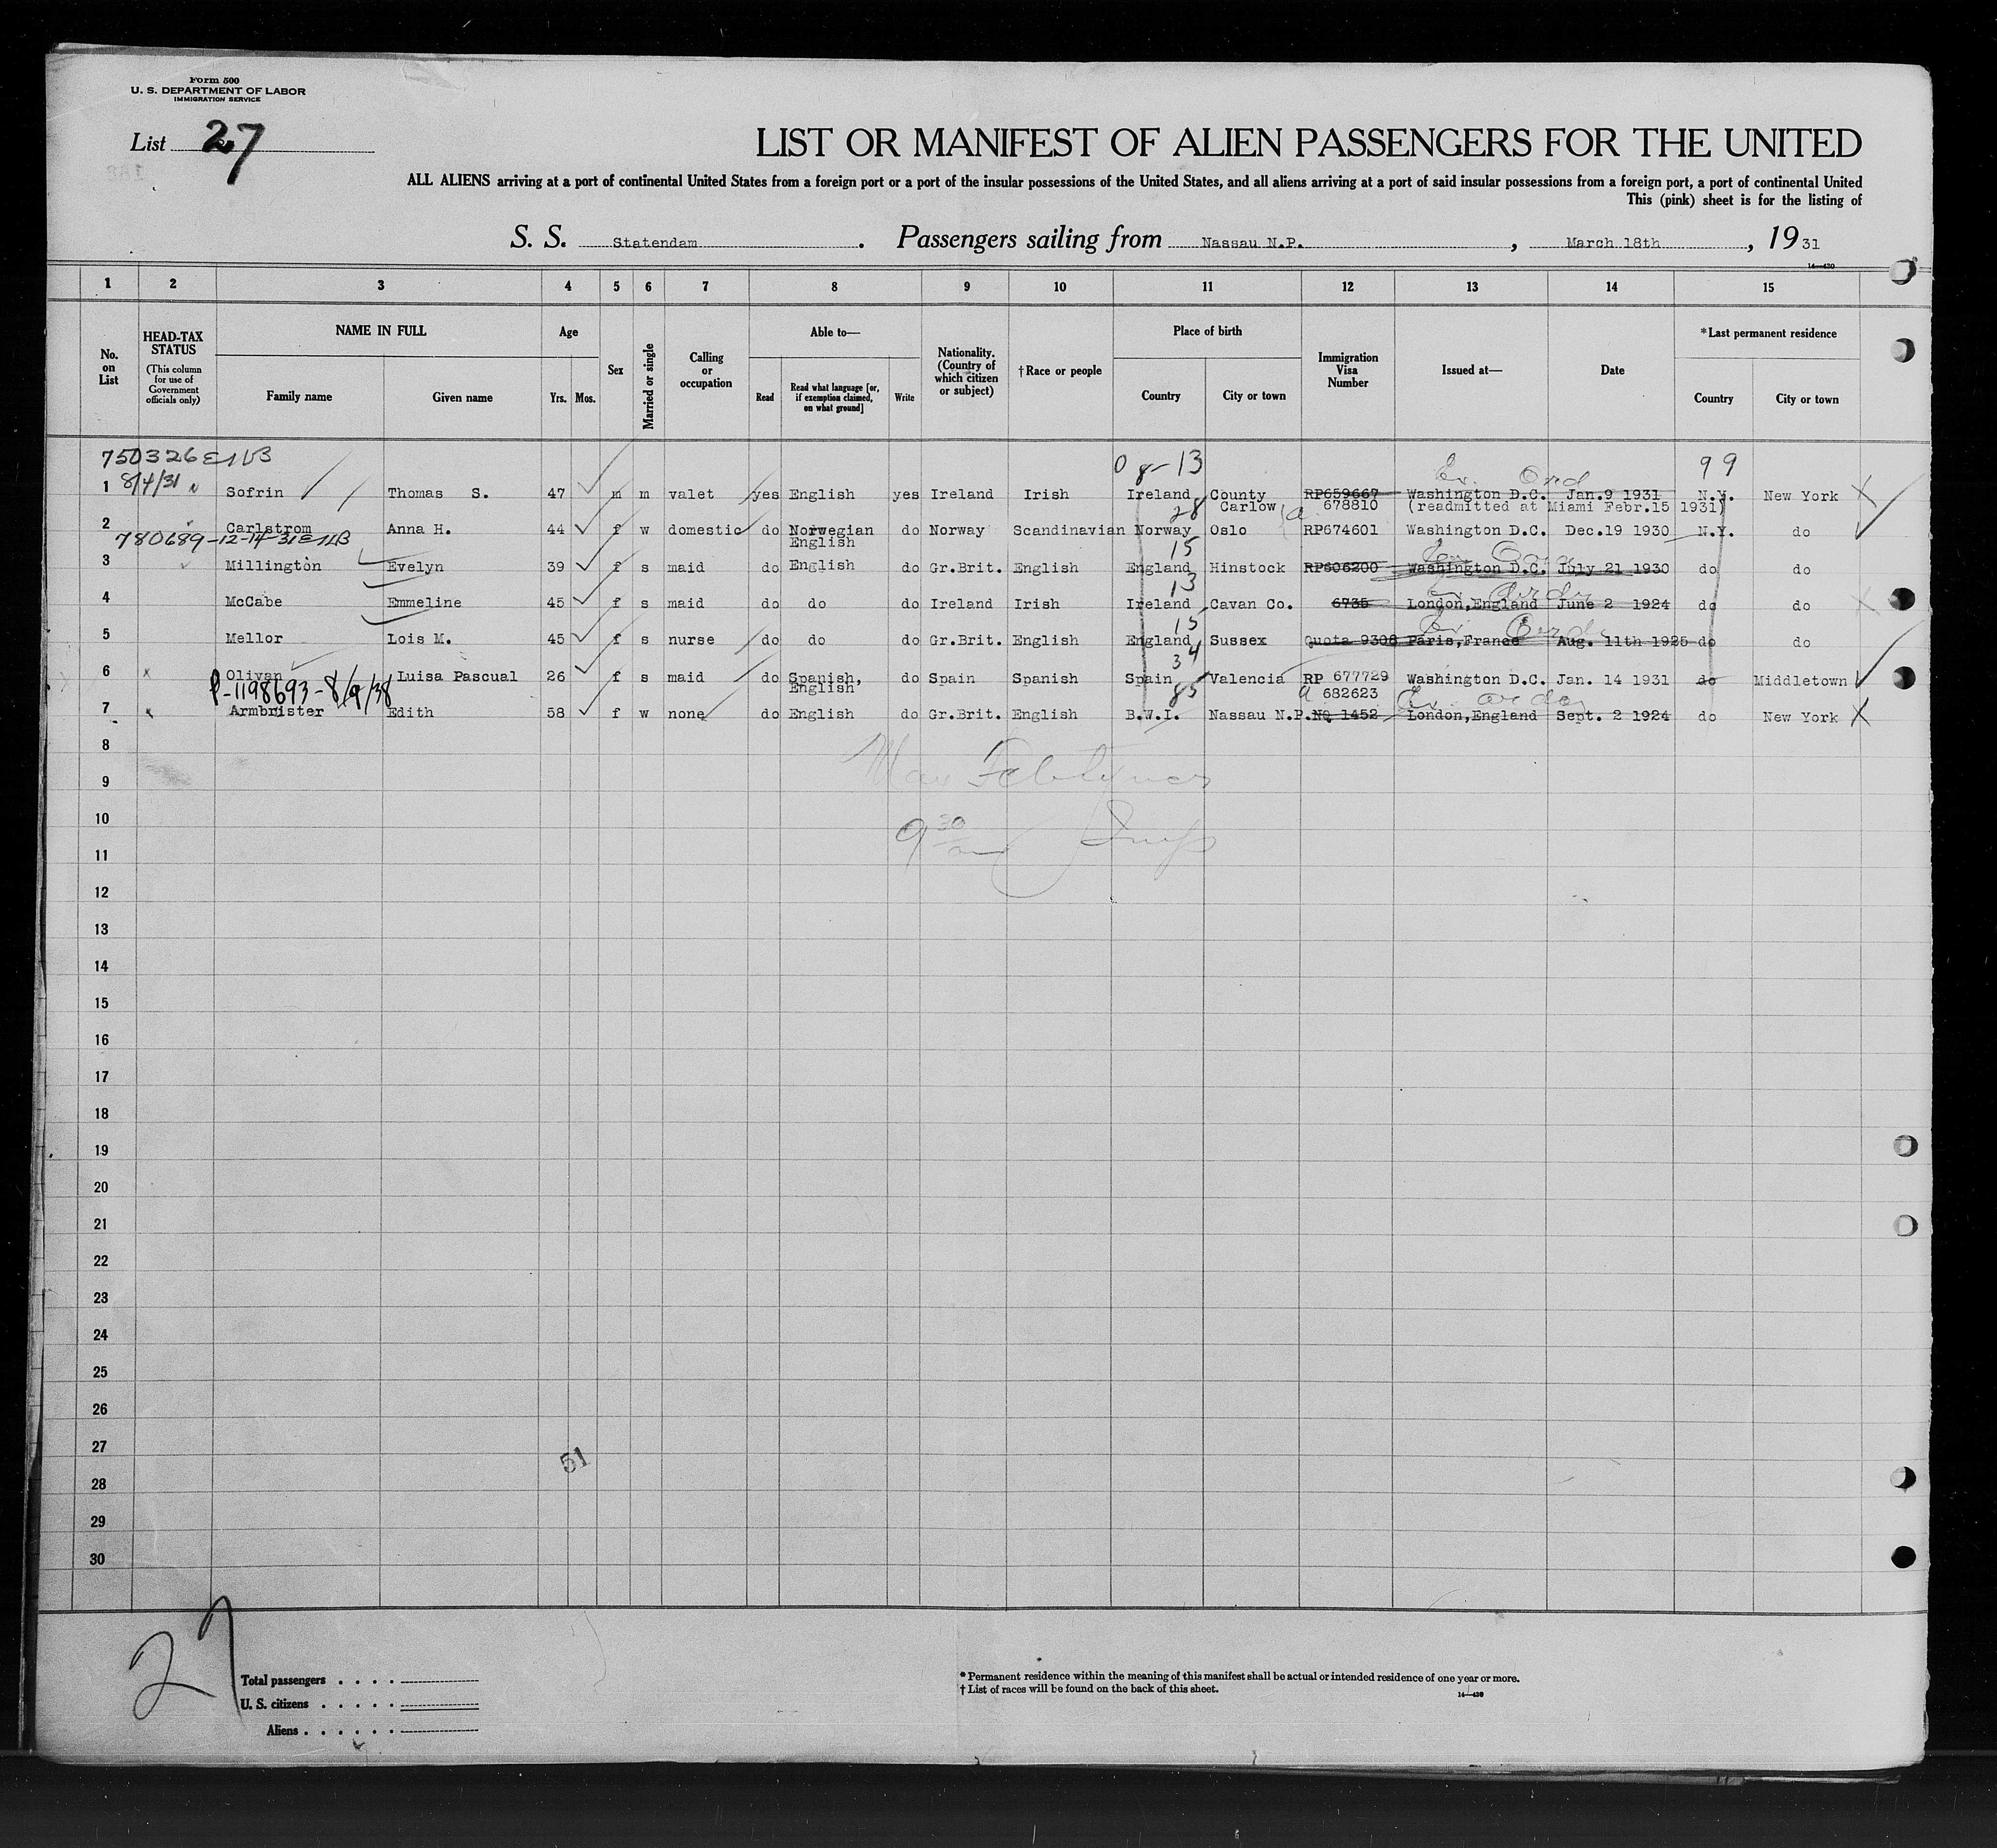 Form 500
U. S. DEPARTMENT OF LABOR
IMMIGRATION SERVICE
List 27
LIST OR MANIFEST OF ALIEN PASSENGERS FOR THE UNITED
ALL ALIENS arriving at a port of continental United States from a foreign port or a port of the insular possessions of the United States, and all aliens arriving at a port of said insular possessions from a foreign port, a port of continental United
This (pink) sheet is for the listing of
S. S. Statendam . Passengers sailing from Nassau N.P. , March 18th , 1931
14—430
1 2 3 4 5 6 7 8 9 10 11 12 13 14 15
No. on List
HEAD-TAX STATUS
(This column for use of Government officials only)
NAME IN FULL
Family name Given name
Age
Yrs. Mos.
Sex
Married or single
Calling or occupation
Able to—
Read
Read what language [or, if exemption claimed, on what ground]
Write
Nationality. (Country of which citizen or subject)
†Race or people
Place of birth
Country City or town
Immigration Visa Number
Issued at—
Date
*Last permanent residence
Country City or town
750326 08-13 99
8/4/31 Ex. Ord
1 Sofrin Thomas S. 47 m m valet yes English yes Ireland Irish Ireland County Carlow RP659667 678810 Washington D.C. Jan.9 1931 N.Y. New York
(readmitted at Miami Febr.15 1931)
28
2 Carlstrom Anna H. 44 f w domestic do Norwegian English do Norway Scandinavian Norway Oslo RP674601 Washington D.C. Dec.19 1930 N.Y. do
780689-12-14-31
15
3 Millington Evelyn 39 f s maid do English do Gr.Brit. English England Hinstock RP606200 Washington D.C. July 21 1930 do do
13
4 McCabe Emmeline 45 f s maid do do do Ireland Irish Ireland Cavan Co. 6735 London,England June 2 1924 do do
15
5 Mellor Lois M. 45 f s nurse do do do Gr.Brit. English England Sussex Quota 9308 Paris,France Aug. 11th 1925 do do
34
6 Olivan Luisa Pascual 26 f s maid do Spanish, English do Spain Spanish Spain Valencia RP 677729 Washington D.C. Jan. 14 1931 do Middletown
P-1198693-8/9/38 85 682623
7 Armbrister Edith 58 f w none do English do Gr.Brit. English B.W.I. Nassau N.P. NQ 1452 London,England Sept. 2 1924 do New York
8
9
9 30
10
11
12
13
14
15
16
17
18
19
20
21
22
23
24
25
26
27
51
28
29
30
27
Total passengers . . . .
U. S. citizens . . . . .
Aliens . . . . . .
* Permanent residence within the meaning of this manifest shall be actual or intended residence of one year or more.
† List of races will be found on the back of this sheet.
14—430